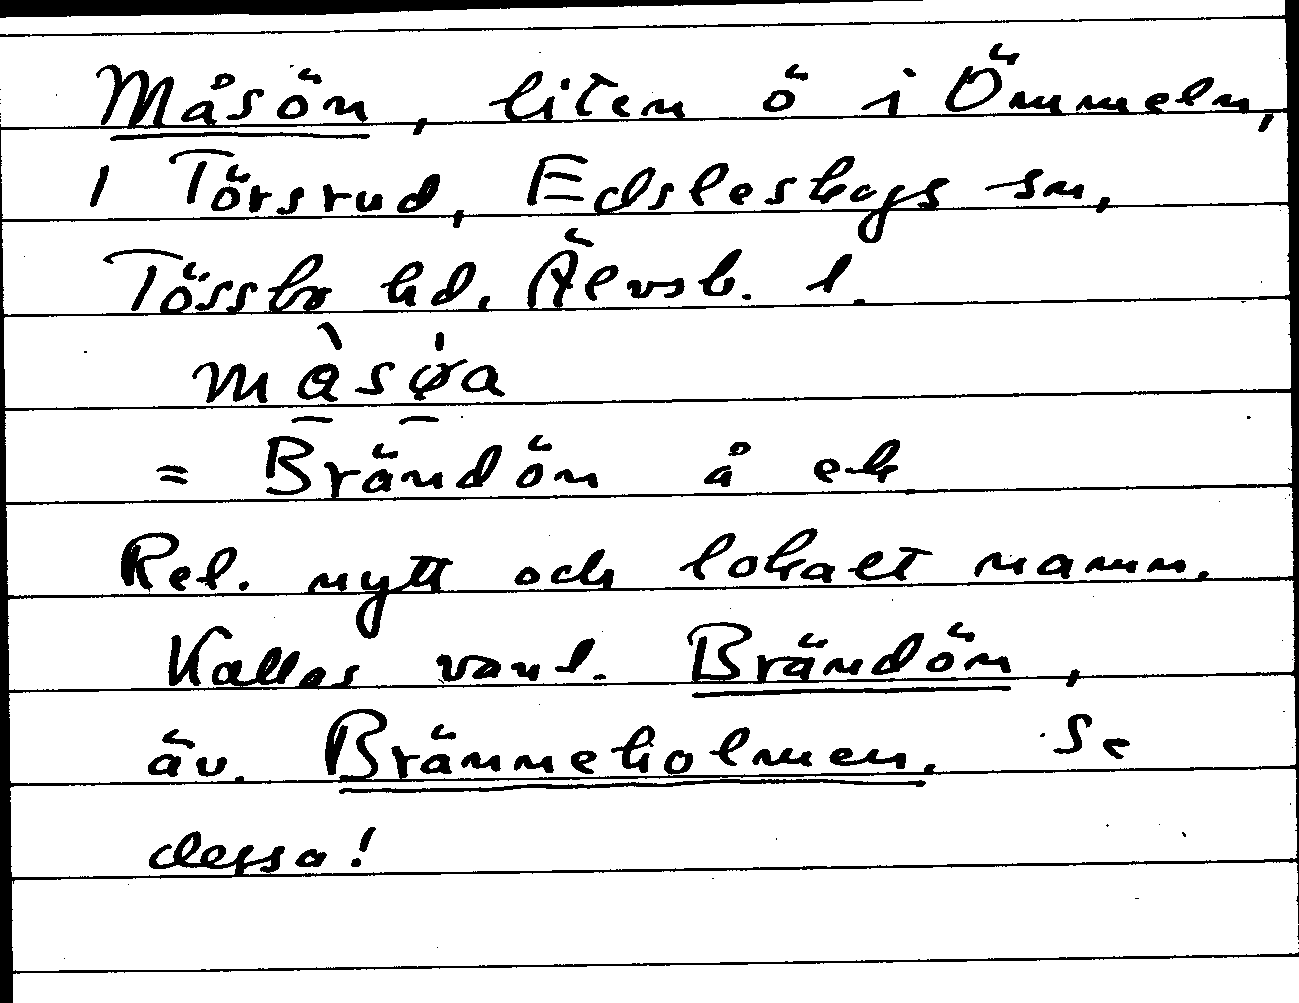 Måsön, liten ö i Ömmeln,
i Törsrud, Edsleskogs sn,
Tössbo hd, Älvsb. l.
= Brändön å ek
Rel. nytt och lokalt namn.
Kallas vanl. Brändön,
äv. Bränneholmen. Se
dessa!